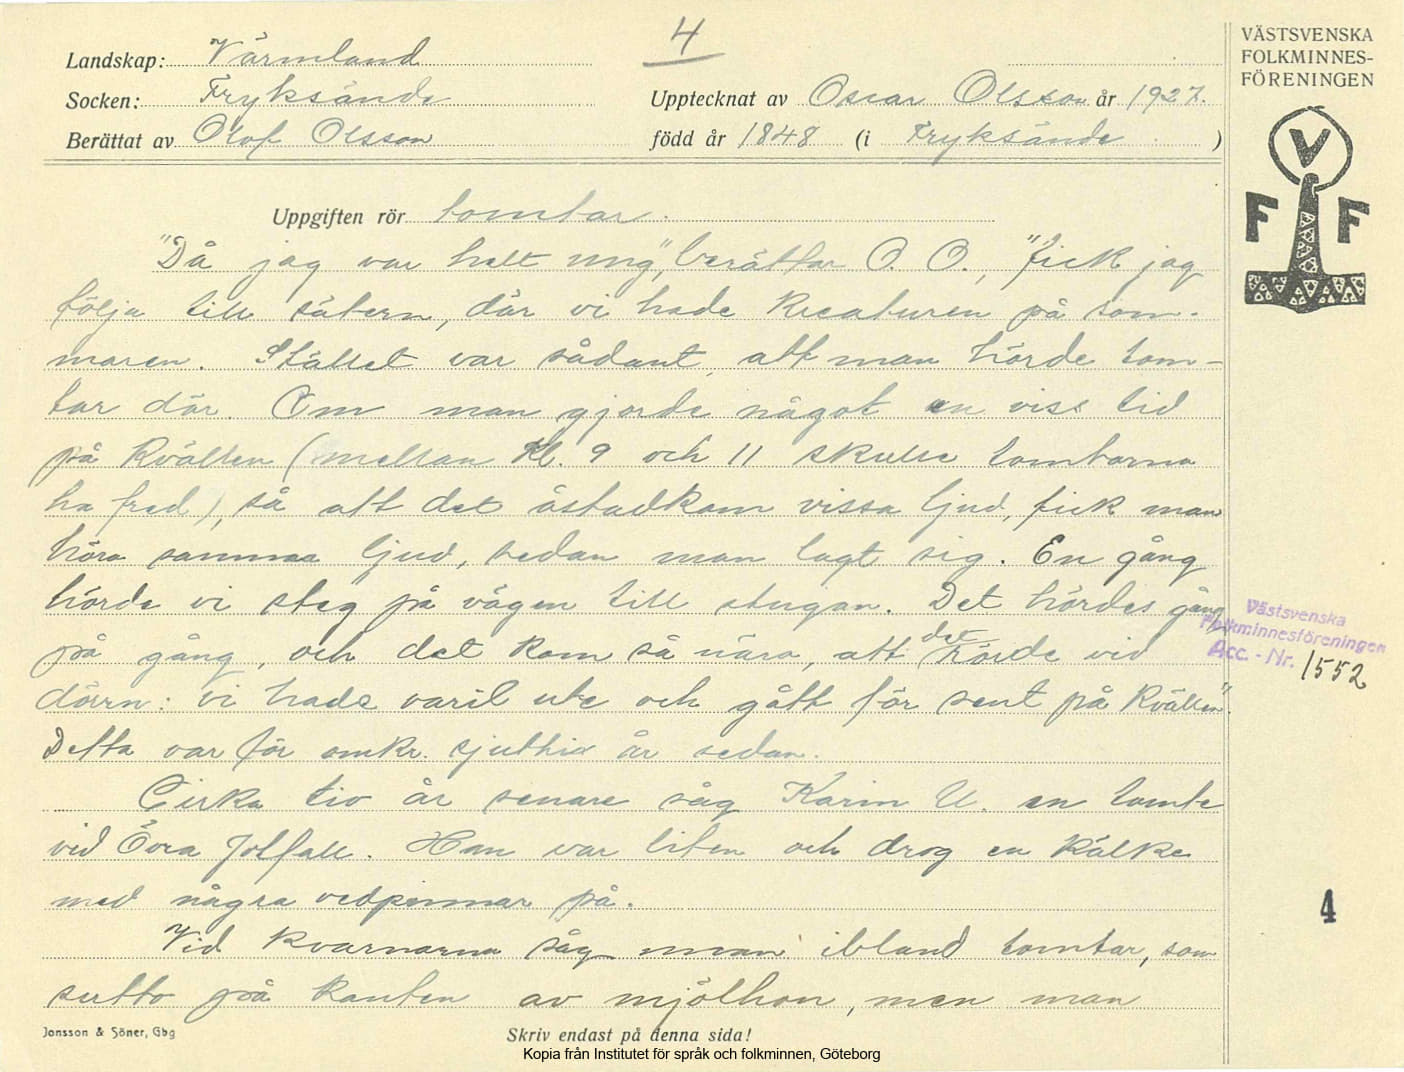 4
VÄSTSVENSKA
FOLKMINNES-
FÖRENINGEN
Landskap: Värmland
Socken: Fryksände Upptecknat av Oscar Olsson år 1927.
Berättat av Olof Olsson född år 1848 (i Fryksände)
V
F F
Uppgiften rör tomtar.
"Då jag var helt ung", berättar O. O., "fick jag
följa till sätern, där vi hade kreaturen på som-
maren. Stället var sådant, att man hörde tom-
tar där. Om man gjorde något en viss tid
på kvällen (mellan kl. 9 och 11 skulle tomtarna
ha fred), så att det åstadkom vissa ljud, fick man
höra samma ljud, sedan man lagt sig. En gång
hörde vi steg på vägen till stugan. Det hördes gång
på gång, och det kom så nära, att det hörde vid
dörrn: vi hade varit ute och gått för sent på kvällen".
Detta var för omkr. sjuttio år sedan.
Cirka tio år senare såg Karin U. en tomte
vid Övra Jolfall. Han var liten och drog en kälke
med några vedpinnar på.
Vid kvarnarna såg man ibland tomtar, som
sutto på kanten av mjölhon, men man
Västsvenska
Folkminnesföreningen
Acc. - Nr. 1552
4
Jonsson & Söner, Gbg
Skriv endast på denna sida!
Kopia från Institutet för språk och folkminnen, Göteborg